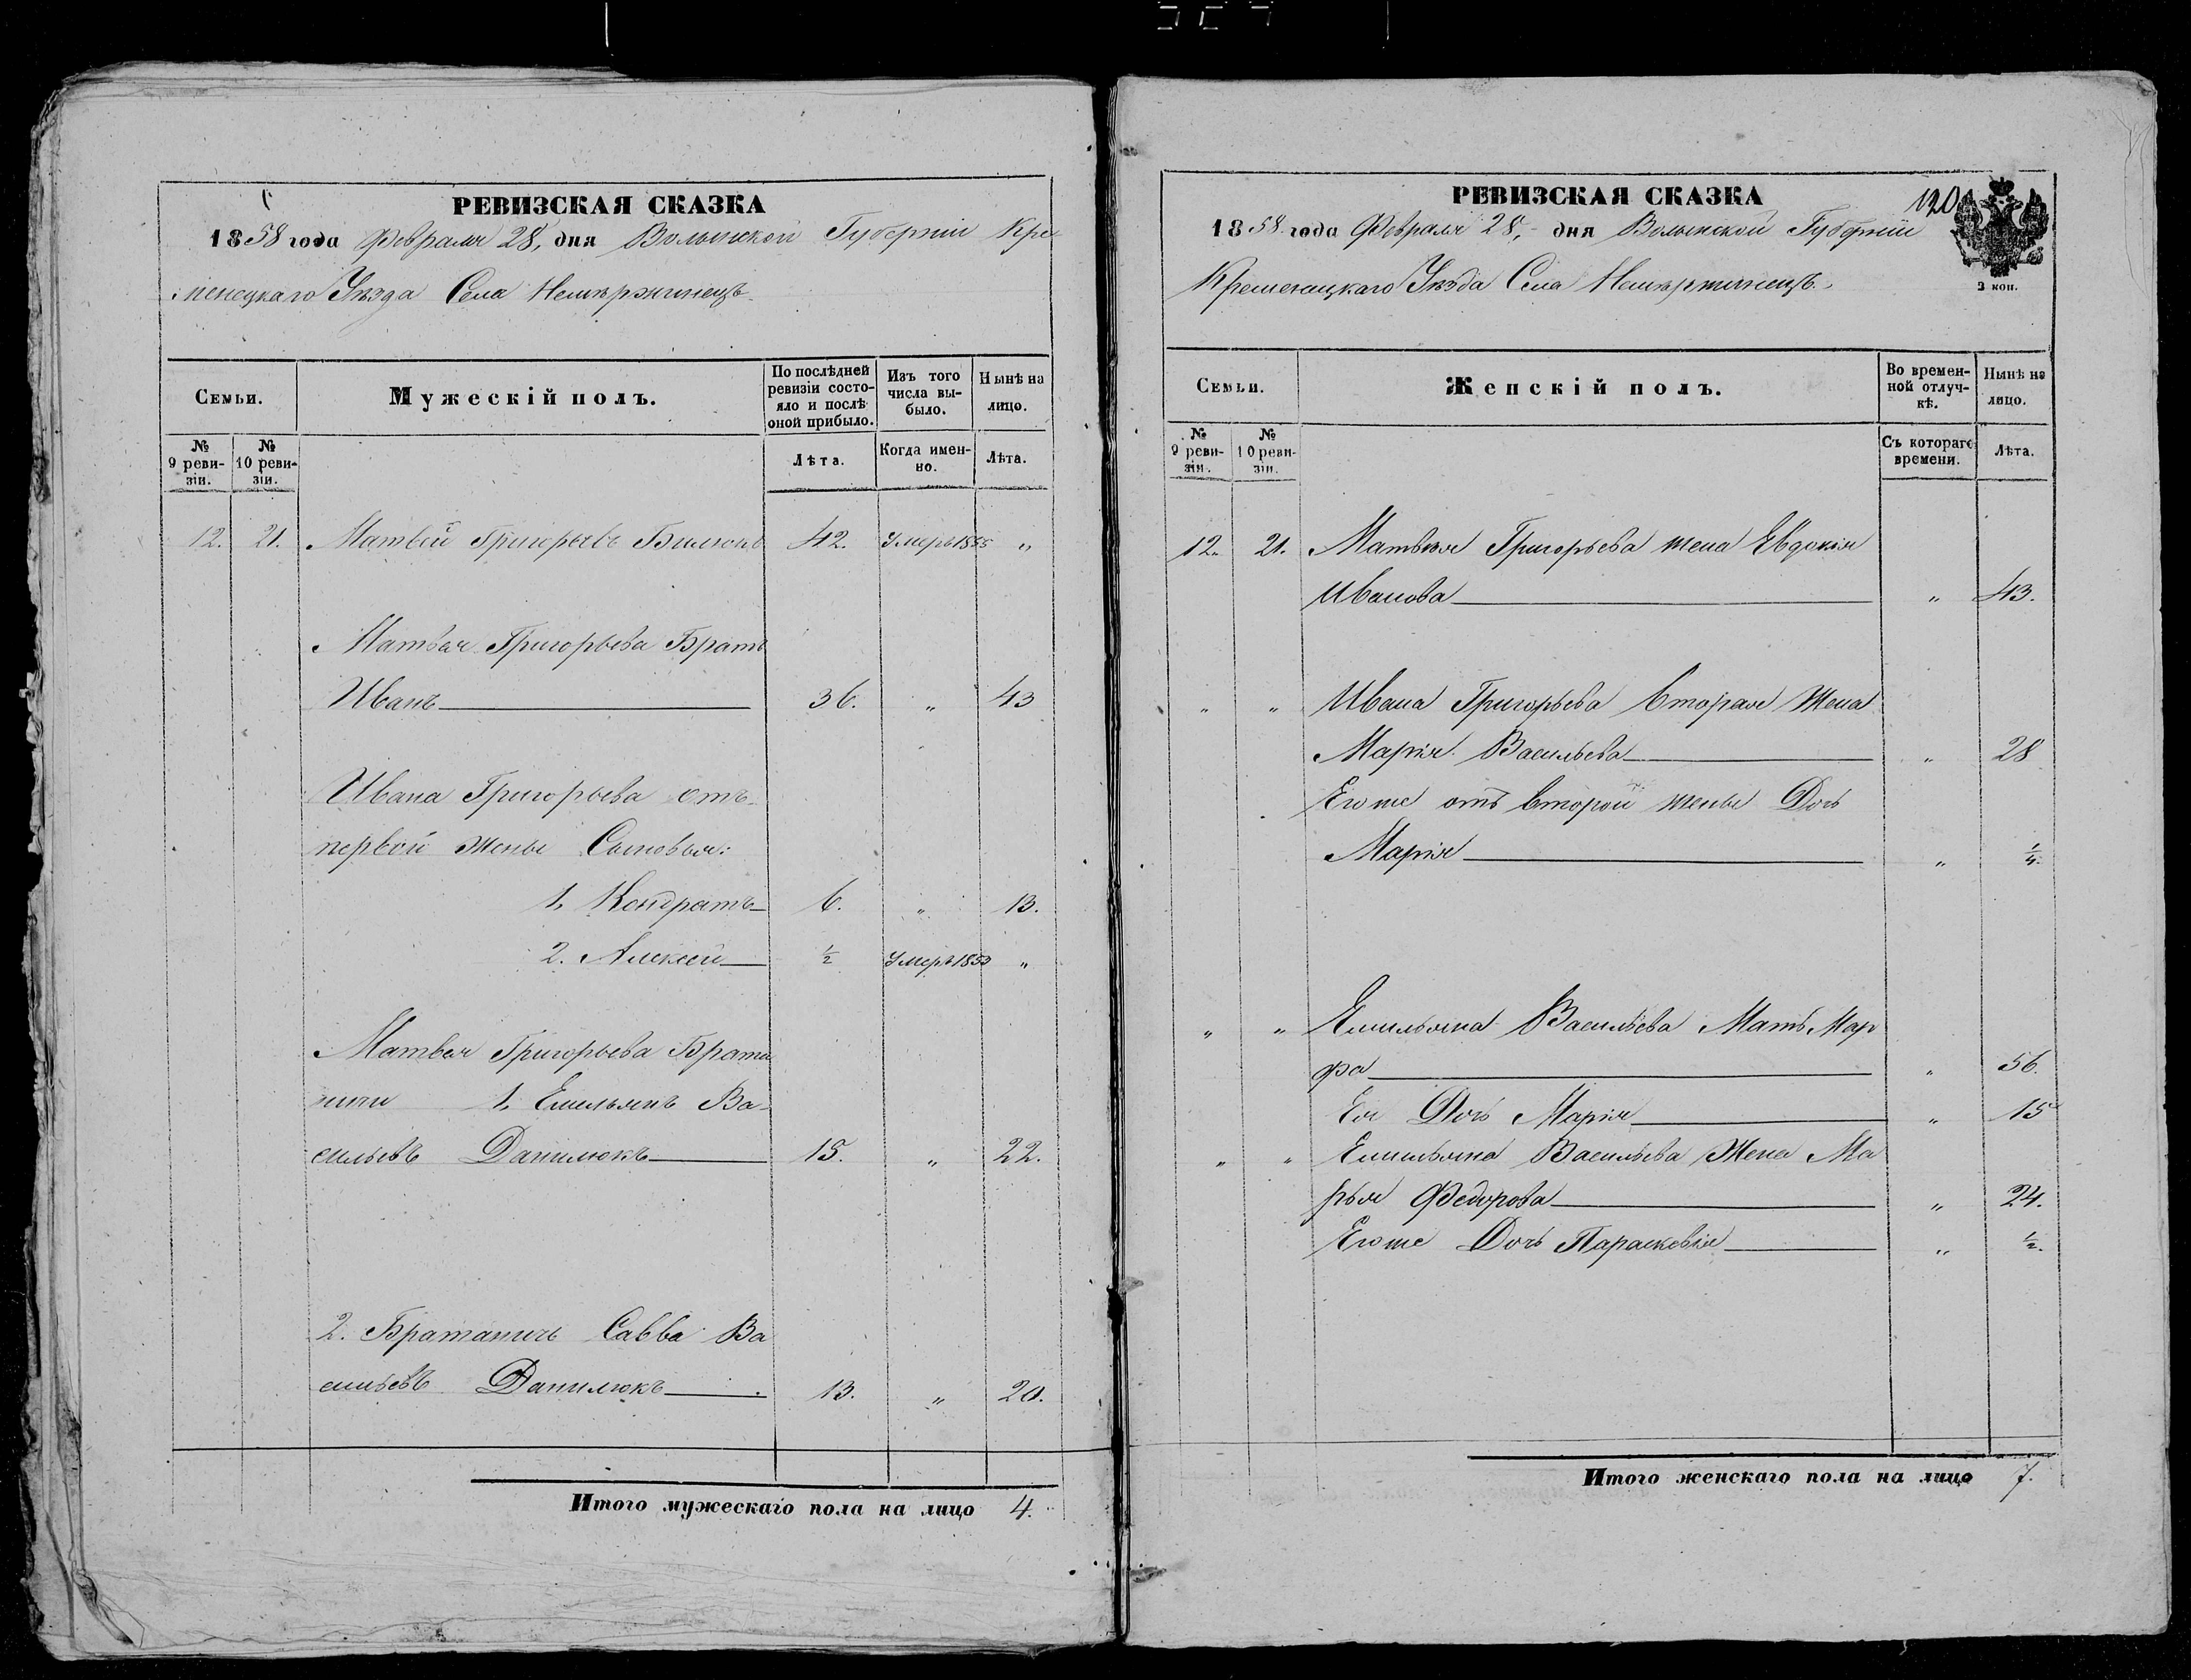 РЕВИЗСКАЯ СКАЗКА
1858 года Февраля 28, дня Волынской Губерніи Кре
менецкаго Уѣзда Села
Семьи.
Мужескій полъ.
По послѣдней ревизіи состо-
яло и послѣ оной прибыло.
Изъ того числа вы-
было.
Нынѣ на лицо.
№ 9 реви-
зіи.
№ 10 реви-
зіи.
Лѣта.
Когда имен-
но.
Лѣта.
12. 21. Матвѣй Григорьевъ Билюкъ 42. Умеръ 1855 "
Матвея Григорьева Братъ
Иванъ 36. " 43
Ивана Григорьева отъ
первой жены Сыновья:
1, Кондратъ 6. " 13.
2. Алексѣй 1/2 Умеръ 1853 "
Матвея Григорьева Брата
ничи 1, Емельянъ Ва-
сильевъ Данилюкъ 15. " 22.
2. Братаничъ Савва Ва
сильевъ Данилюкъ 13. " 20.
Итого мужескаго пола на лицо 4.
РЕВИЗСКАЯ СКАЗКА
120
1858 года Февраля 28, дня Волынской Губерніи
Кременецкаго Уѣзда Села
3 коп.
Семьи.
Женскій полъ.
Во времен-
ной отлуч-
кѣ.
Нынѣ на лицо.
№ 9 реви-
зіи.
№ 10 реви-
зіи.
Съ котораго времени.
Лѣта.
12. 21. Матвѣя Григорьева жена Евдокія
Иванова " 43.
" " Ивана Григорьева вторая жена
Марія Васильева " 28
Егоже отъ второй жены Дочь
Марія " 1/4.
" " Емильяна Васильева Мать Мар
фа " 56.
Ея Дочь Марія " 15
" " Емильяна Васильева Жена Ма
рья Федорова " 24.
Егоже Дочь Параскевія " 1/2.
Итого женскаго пола на лицо 7.